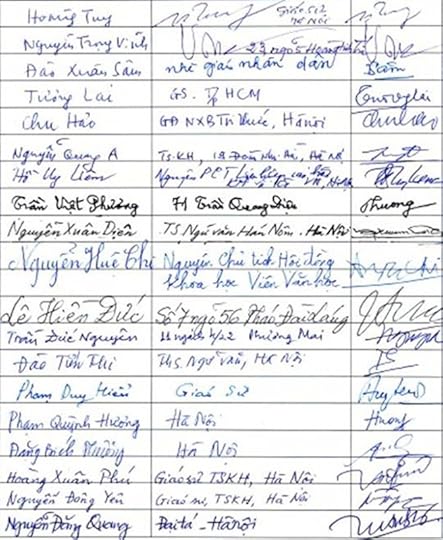 Hoàng Tụy Giáo sư Hà Nội
Nguyễn Trọng Vĩnh 23 ngõ 5 Hoàng
Đào Xuân Sâm nhà giáo nhân dân Sâm
Tương Lai GS. Tp HCM Tuonglai
Chu Hảo GĐ NXB Tri thức, Hà Nội
Nguyễn Quang A TS.KH, Hà Nội
Hồ Uy Liêm Nguyên PCT
Trần Việt Phương 71 Trần Quang Diệu Phương
Nguyễn Xuân Diện TS Ngữ văn Hán Nôm. Hà Nội
Nguyễn Huệ Chi Nguyên Chủ tịch Hội đồng
khoa học Viện Văn học
Lê Hiền Đức Số 7 ngõ 56 Pháo Đài Láng
Trần Đức Nguyên Phương Mai
Đào Tiến Thi Ths. Ngữ văn, Hà Nội
Phạm Duy Hiển Giáo sư
Phạm Quỳnh Hương Hà Nội Huong
Đặng Bích Phượng Hà Nội
Hoàng Xuân Phú Giáo sư TSKH, Hà Nội
Nguyễn Đông Yên Giáo sư, TSKH, Hà Nội
Nguyễn Đăng Quang Đại tá - Hà Nội